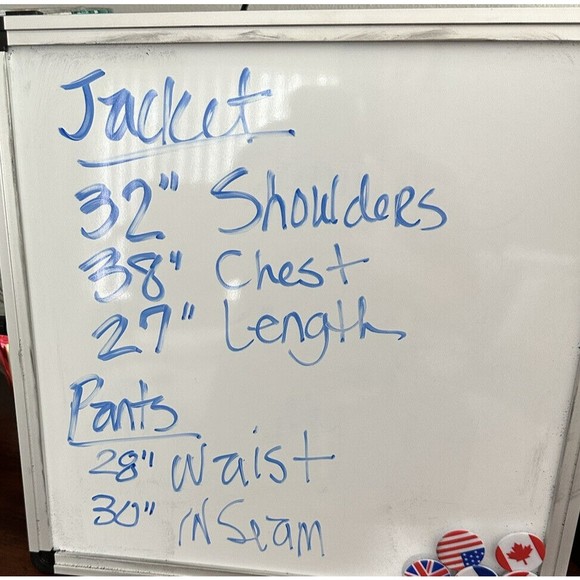 Jacket
32" Shoulders
38" Chest
27" Length
Pants
28" Waist
30" INSeam